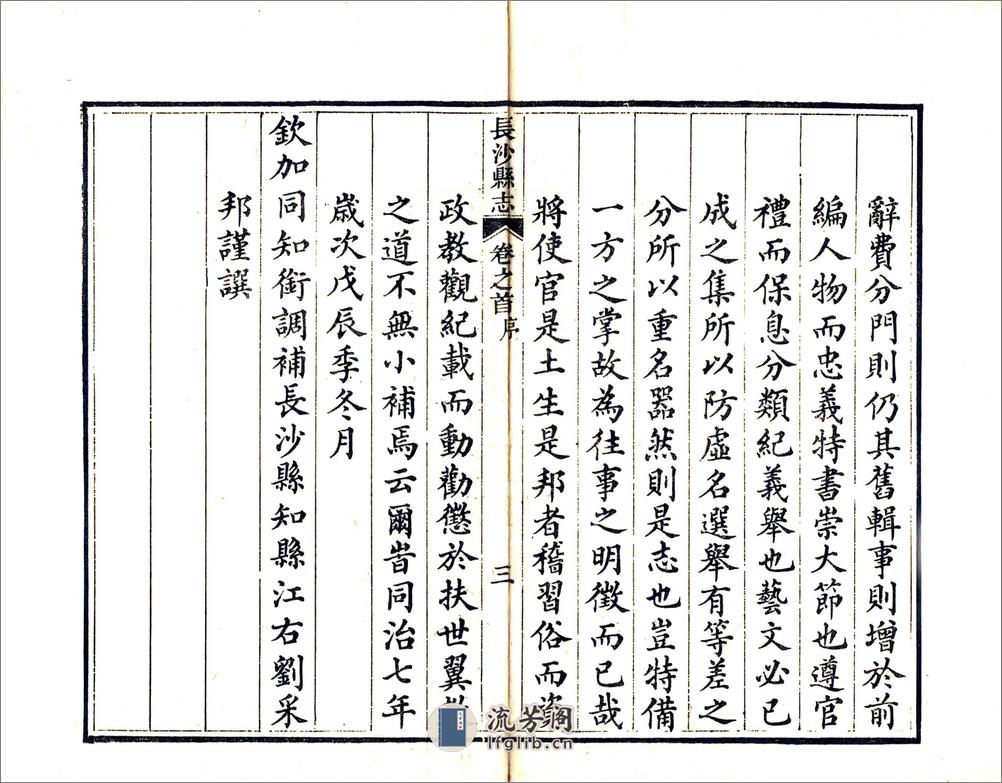 辭費分門則仍其舊輯事則增於前
編人物而忠義特書崇大節也遵官
禮而保息分類紀義舉也藝文必已
成之集所以防虛名選舉有等差之
分所以重名器然則是志也豈特備
一方之掌故為往事之明徵而已哉
將使官是土生是邦者稽習俗而
長沙縣志 卷之首 序 三
政教觀紀載而動勸懲於扶世翼
之道不無小補焉云爾旹同治七年
歲次戊辰季冬月
欽加同知銜調補長沙縣知縣江右劉采
邦謹譔
流芳閣
lfglib.cn